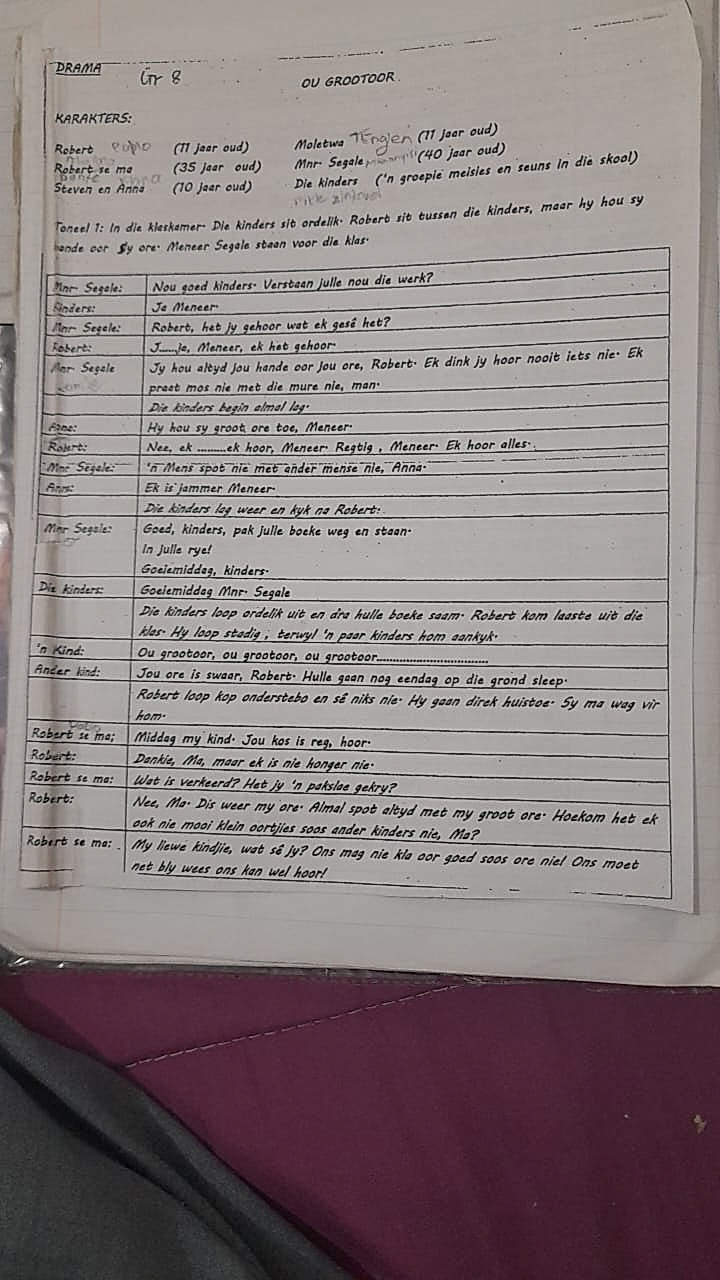 DRAMA Gr 8
OU GROOTOOR
KARAKTERS:
Robert (11 jaar oud) Moletwa (11 jaar oud)
Robert se ma (35 jaar oud) Mnr. Segale (40 jaar oud)
Steven en Anna (10 jaar oud) Die kinders ('n groepie meisies en seuns in die skool)
Toneel 1: In die klaskamer. Die kinders sit ordelik. Robert sit tussen die kinders, maar hy hou sy
hande oor sy ore. Meneer Segale staan voor die klas.
Mnr Segale: Nou goed kinders. Verstaan julle nou die werk?
Kinders: Ja Meneer.
Mnr Segale: Robert, het jy gehoor wat ek gesê het?
Robert: J.....ja, Meneer, ek het gehoor.
Mnr Segale Jy hou altyd jou hande oor jou ore, Robert. Ek dink jy hoor nooit iets nie. Ek
praat mos nie met die mure nie, man.
Die kinders begin almal lag.
Anna: Hy hou sy groot ore toe, Meneer.
Robert: Nee, ek .........ek hoor, Meneer. Regtig, Meneer. Ek hoor alles.
Mnr Segale: 'n Mens spot nie met ander mense nie, Anna.
Anna: Ek is jammer Meneer.
Die kinders lag weer en kyk na Robert.
Mnr Segale: Goed, kinders, pak julle boeke weg en staan.
In julle rye!
Goeiemiddag, kinders.
Die kinders: Goeiemiddag Mnr. Segale
Die kinders loop ordelik uit en dra hulle boeke saam. Robert kom laaste uit die
klas. Hy loop stadig, terwyl 'n paar kinders hom aankyk.
'n Kind: Ou grootoor, ou grootoor, ou grootoor................................
Ander kind: Jou ore is swaar, Robert. Hulle gaan nog eendag op die grond sleep.
Robert loop kop onderstebo en sê niks nie. Hy gaan direk huistoe. Sy ma wag vir
hom.
Robert se ma; Middag my kind. Jou kos is reg, hoor.
Robert: Dankie, Ma, maar ek is nie honger nie.
Robert se ma: Wat is verkeerd? Het jy 'n pakslae gekry?
Robert: Nee, Ma. Dis weer my ore. Almal spot altyd met my groot ore. Hoekom het ek
ook nie mooi klein oortjies soos ander kinders nie, Ma?
Robert se ma: My liewe kindjie, wat sê jy? Ons mag nie kla oor goed soos ore nie! Ons moet
net bly wees ons kan wel hoor!